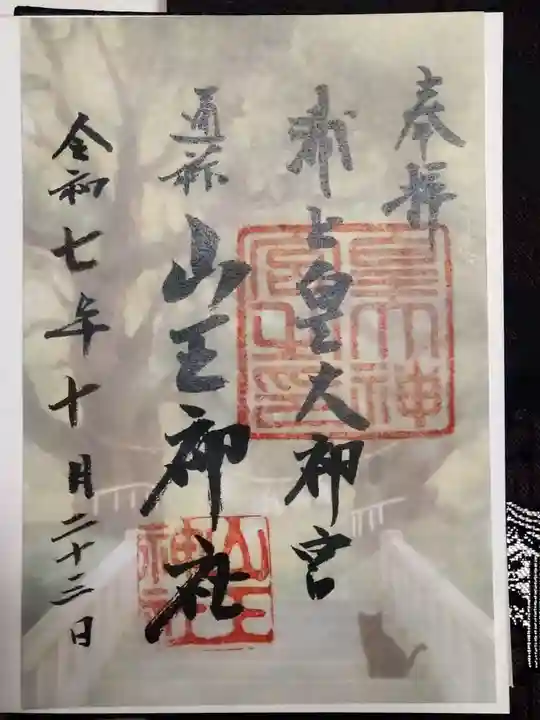 奉拝
浦上皇大神宮
通称
山王神社
令和七年十月二十三日
皇大神
宮之印
山王
神社